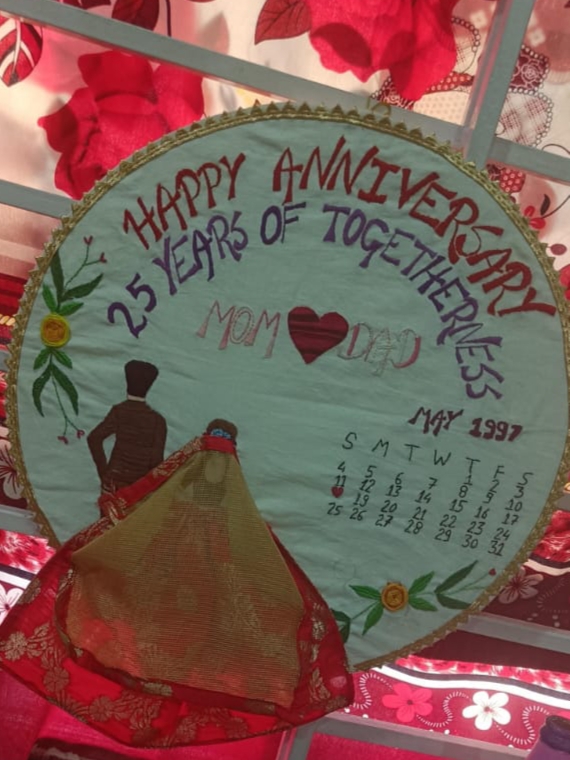 HAPPY ANNIVERSARY
25 YEARS OF TOGETHERNESS
MOM DAD
MAY 1997
S M T W T F S
1 2 3
4 5 6 7 8 9 10
11 12 13 14 15 16 17
19 20 21 22 23 24
25 26 27 28 29 30 31